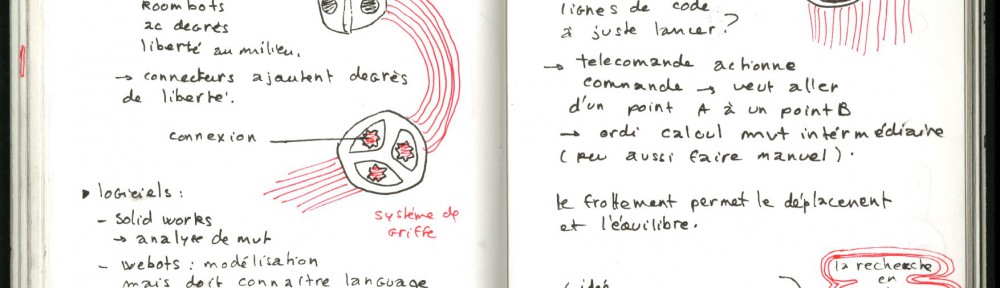 Roombots
2c degrés
liberté au milieu.
→ connecteurs ajoutent degrès
de liberté.
connexion
système de
griffe
▸ logiciels :
- Solid works
→ analyse de mvt
- webots : modélisation
mais doit connaître language
lignes de code
à juste lancer ?
→ télécomande actionne
commande → veut aller
d'un point A à un point B
→ ordi calcul mvt intérmédiaire
(peu aussi faire manuel).
le frottement permet le déplacement
et l'équilibre.
la recherche
en